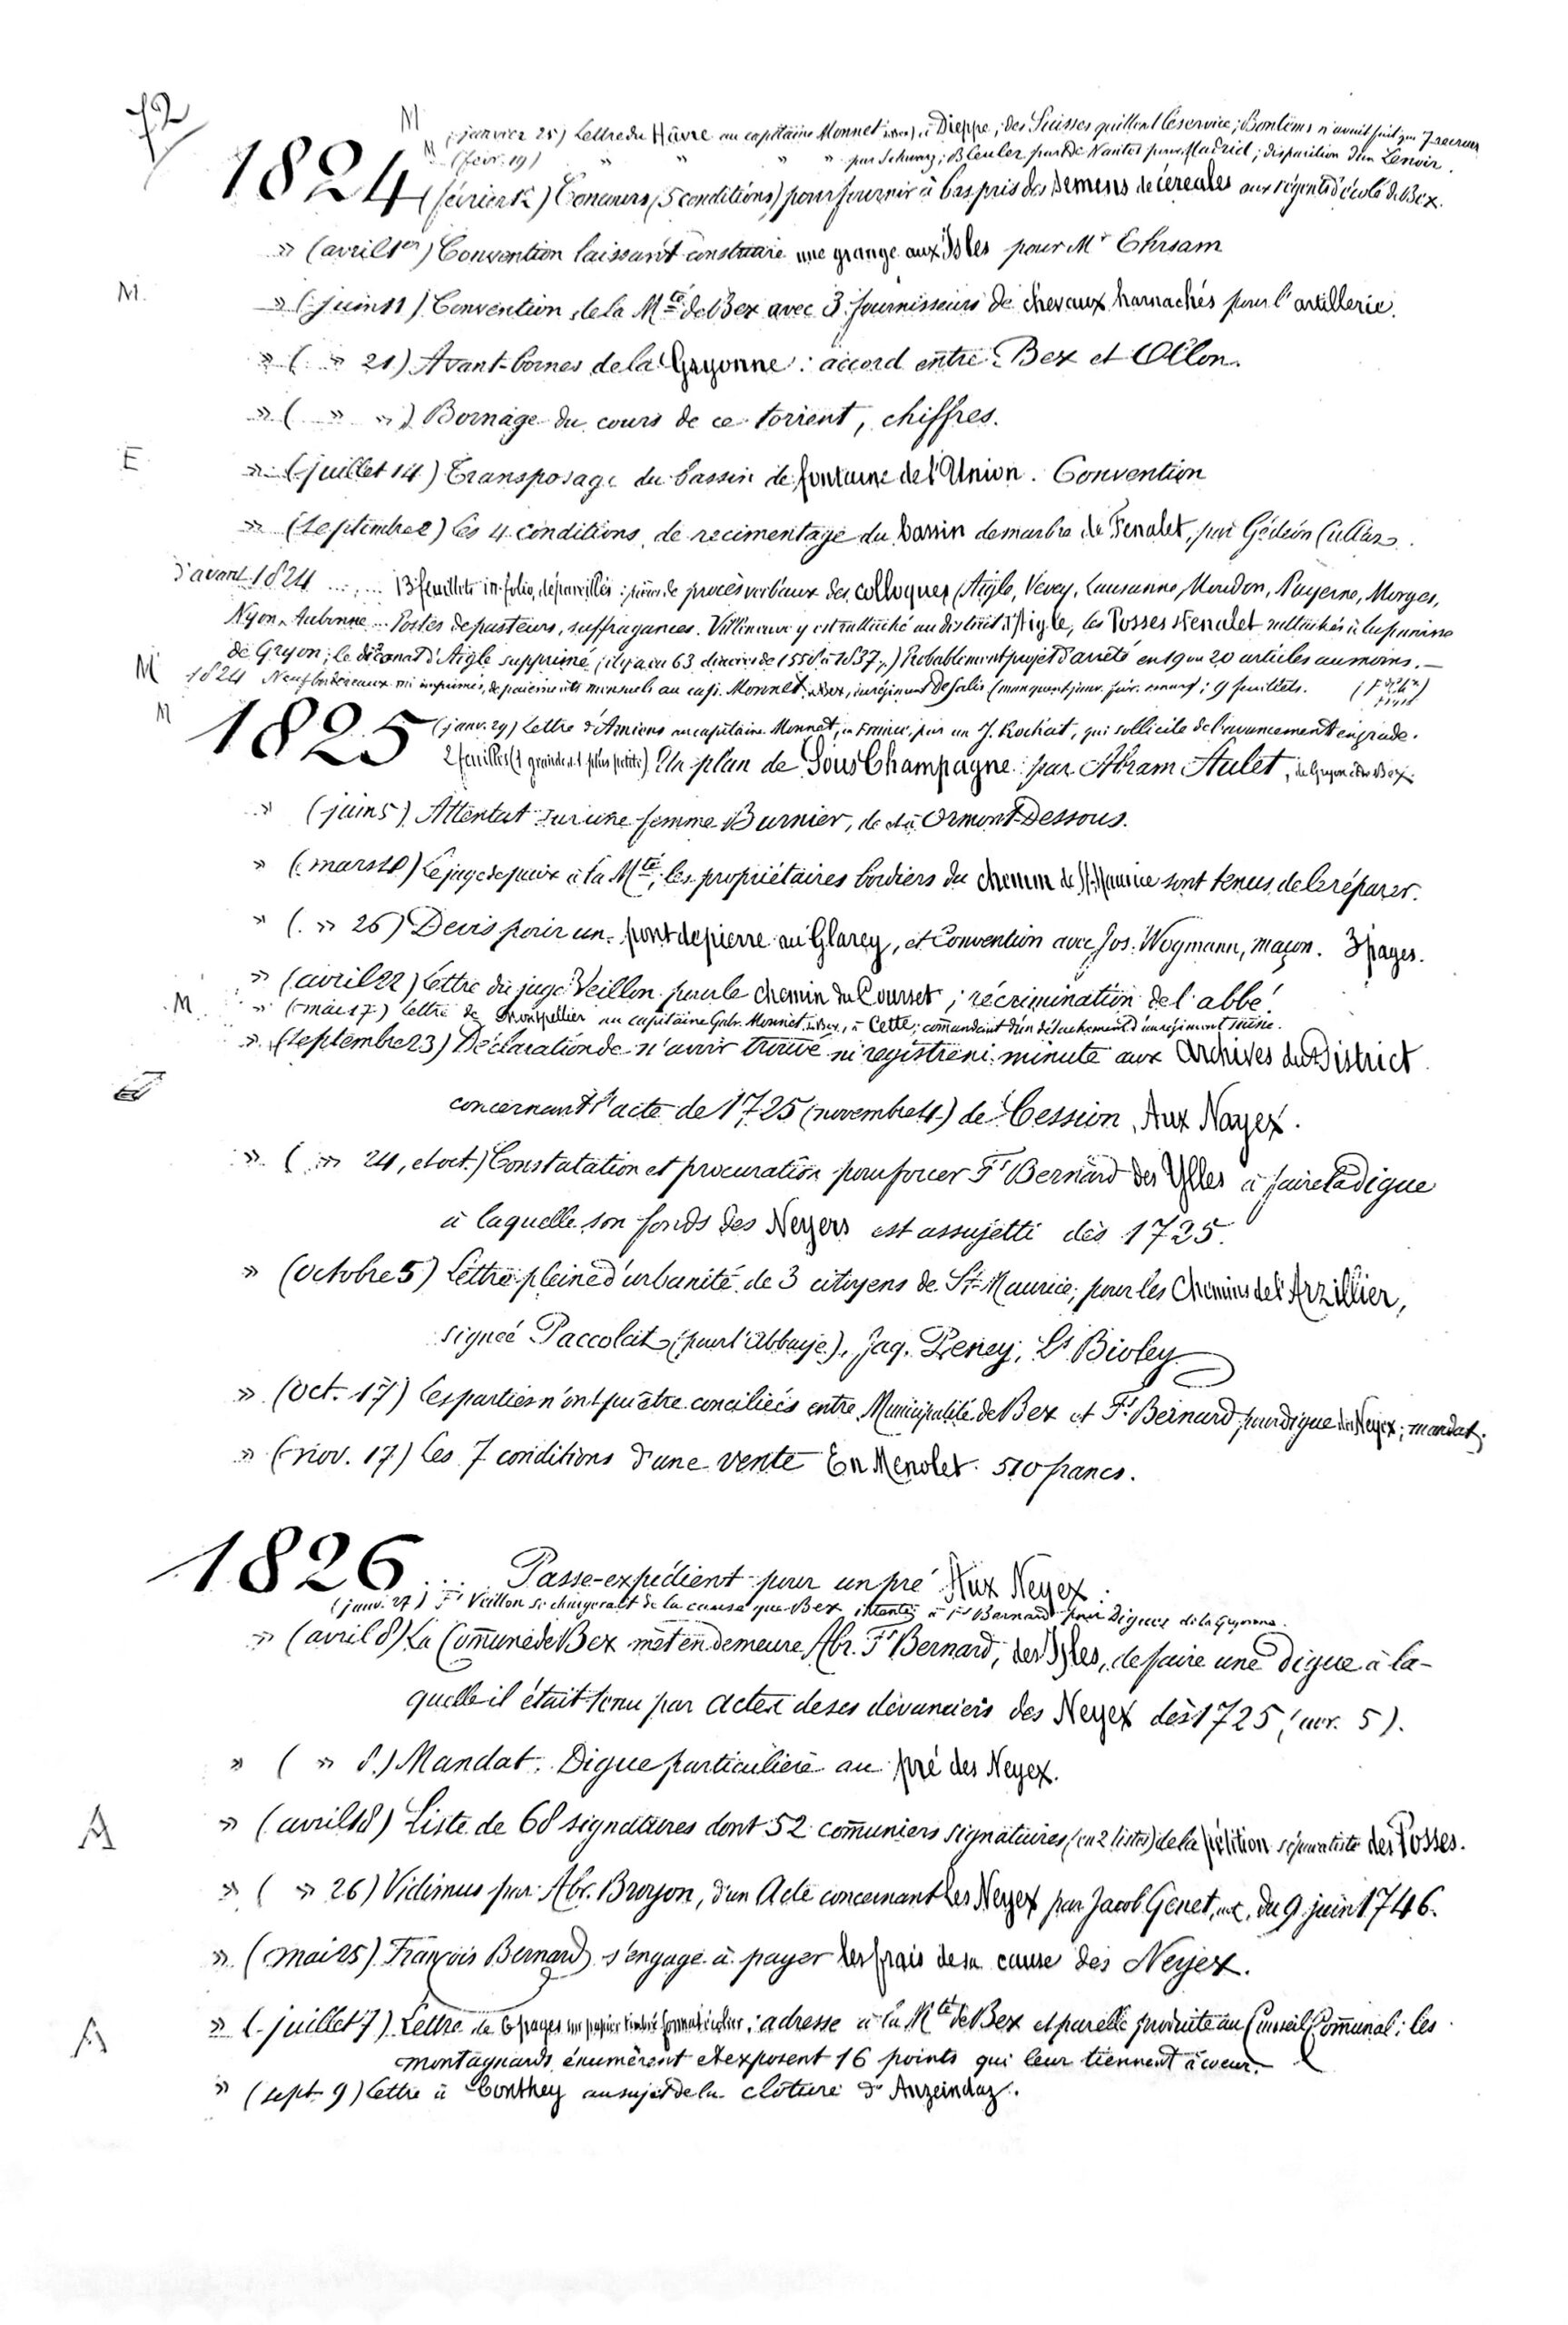 72
M (janvier 25) Lettre du Hâvre au capitaine Monnet à Dieppe; des Suisses quittent le service; Bontems n'avait fait que 7 recrues
M (févr. 19) » » » » par Schwarz; Bleuler part de Nantes pour Madrid; disparition d'un Lenoir.
1824 (février 12) Concours (5 conditions) pour fournir à bas pris des semens de céréales aux régents d'école de Bex.
» (avril 1er) Convention laissant construire une grange aux Isles pour Mr Ehrsam
M. » (juin 11) Convention de la Mté de Bex avec 3 fournisseurs de chevaux harnachés pour l'artillerie.
» ( » 21) Avant-bornes de la Gryonne: accord entre Bex et Ollon.
» ( » » ) Bornage du cours de ce torrent, chiffres.
E » (juillet 14) Transposage du bassin de fontaine de l'Union. Convention
» (septembre 2) Les 4 conditions de recimentage du bassin de marbre de Fenalet, par Gédéon
d'avant 1824 ...... 13 feuillets in-folio, dépareillés: de procès verbaux des colloques (Aigle, Vevey, Lausanne, Moudon, Payerne, Morges,
Nyon, Aubonne... Postes de pasteurs, suffragances. Villeneuve y est rattaché au district d'Aigle, les Posses & Fenalet rattachés à la paroisse
de Gryon; le diaconat d'Aigle supprimé; (il y a eu 63 diacres de 1558 à 1837.) Probablement projet d'arrêté en 19 ou 20 articles au moins.—
M 1824 Neuf bordereaux mi imprimés, de paiements mensuels au cap. Monnet, de Bex, au régiment De Salis (manquent janv. févr. mars); 9 feuillets.
M 1825 (janv. 29) Lettre d'Amiens au capitaine Monnet, en France, par un J. Rochat, qui sollicite de l'avancement en grade.
2 feuilles (1 grande et 1 plus petite) Un plan de Sous Champagne par Abram Aulet, de Gryon Bex.
» (juin 5) Attentat sur une femme Burnier, de & à Ormont-Dessous.
» (mars 18) Le juge de paix à la Mté; les propriétaires bordiers du chemin de St Maurice sont tenus de le réparer.
» ( » 26) Devis pour un pont de pierre au Glarey, et Convention avec Jos. Wogmann, maçon. 3 pages.
» (avril 22) Lettre du juge Veillon pour le chemin du Courset; récrimination de l'abbé!
M. » (mai 17) Lettre de Montpellier au capitaine Gabr. Monnet de Bex, à Cette; comandant d'un détachement d'un régiment suisse.
» (septembre 23) Déclaration de n'avoir trouvé ni registre ni minute aux Archives du District
concernant l'acte de 1725 (novembre 4) de Cession, Aux Noyex.
» ( » 24, et oct.) Constatation et procuration pour forcer Fs Bernard des Ylles à faire la digue
à laquelle son fonds des Neyers est assujetti dès 1725.
» (octobre 5) Lettre pleine d'urbanité de 3 citoyens de St-Maurice, pour les Chemins de l'Arzillier,
signée Paccolat (pour l'Abbaye), Jaq. Preney, Ls Bioley
» (oct. 17) Les parties n'ont pu être conciliées entre Municipalité de Bex et Fs Bernard, pour digue des Neyex; mandat.
» (nov. 17) Les 7 conditions d'une vente En Menolet. 510 francs.
1826 ... Passe-expédient pour un pré Aux Neyex.
(janv. 27) Fs Veillon se chargerait de la cause que Bex intente à Fs Bernard pour Digues de la Gryonne.
» (avril 8) La Comune de Bex met en demeure Abr. Fs Bernard, des Isles, de faire une digue à la-
quelle il était tenu par acte de ses devanciers des Neyex dès 1725 (avr. 5).
» ( » 8.) Mandat. Digue particulière au pré des Neyex.
A » (avril 18) Liste de 68 signatures dont 52 comuniers signataires (en 2 listes) de la pétition séparatiste des Posses.
» ( » 26) Vidimus par Abr. Broyon, d'un Acte concernant les Neyex par Jacob Genet, not, du 9 juin 1746.
» (mai 25) François Bernard s'engage à payer les frais de sa cause des Neyex.
A » (juillet 7) Lettre de 6 pages sur papier timbré; adresse à la Mté de Bex et par elle produite au Conseil Comunal; les
montagnards énumèrent et exposent 16 points qui leur tiennent à cœur.—
» (sept. 9) Lettre à Conthey au sujet de la clôture d'Anzeindaz.